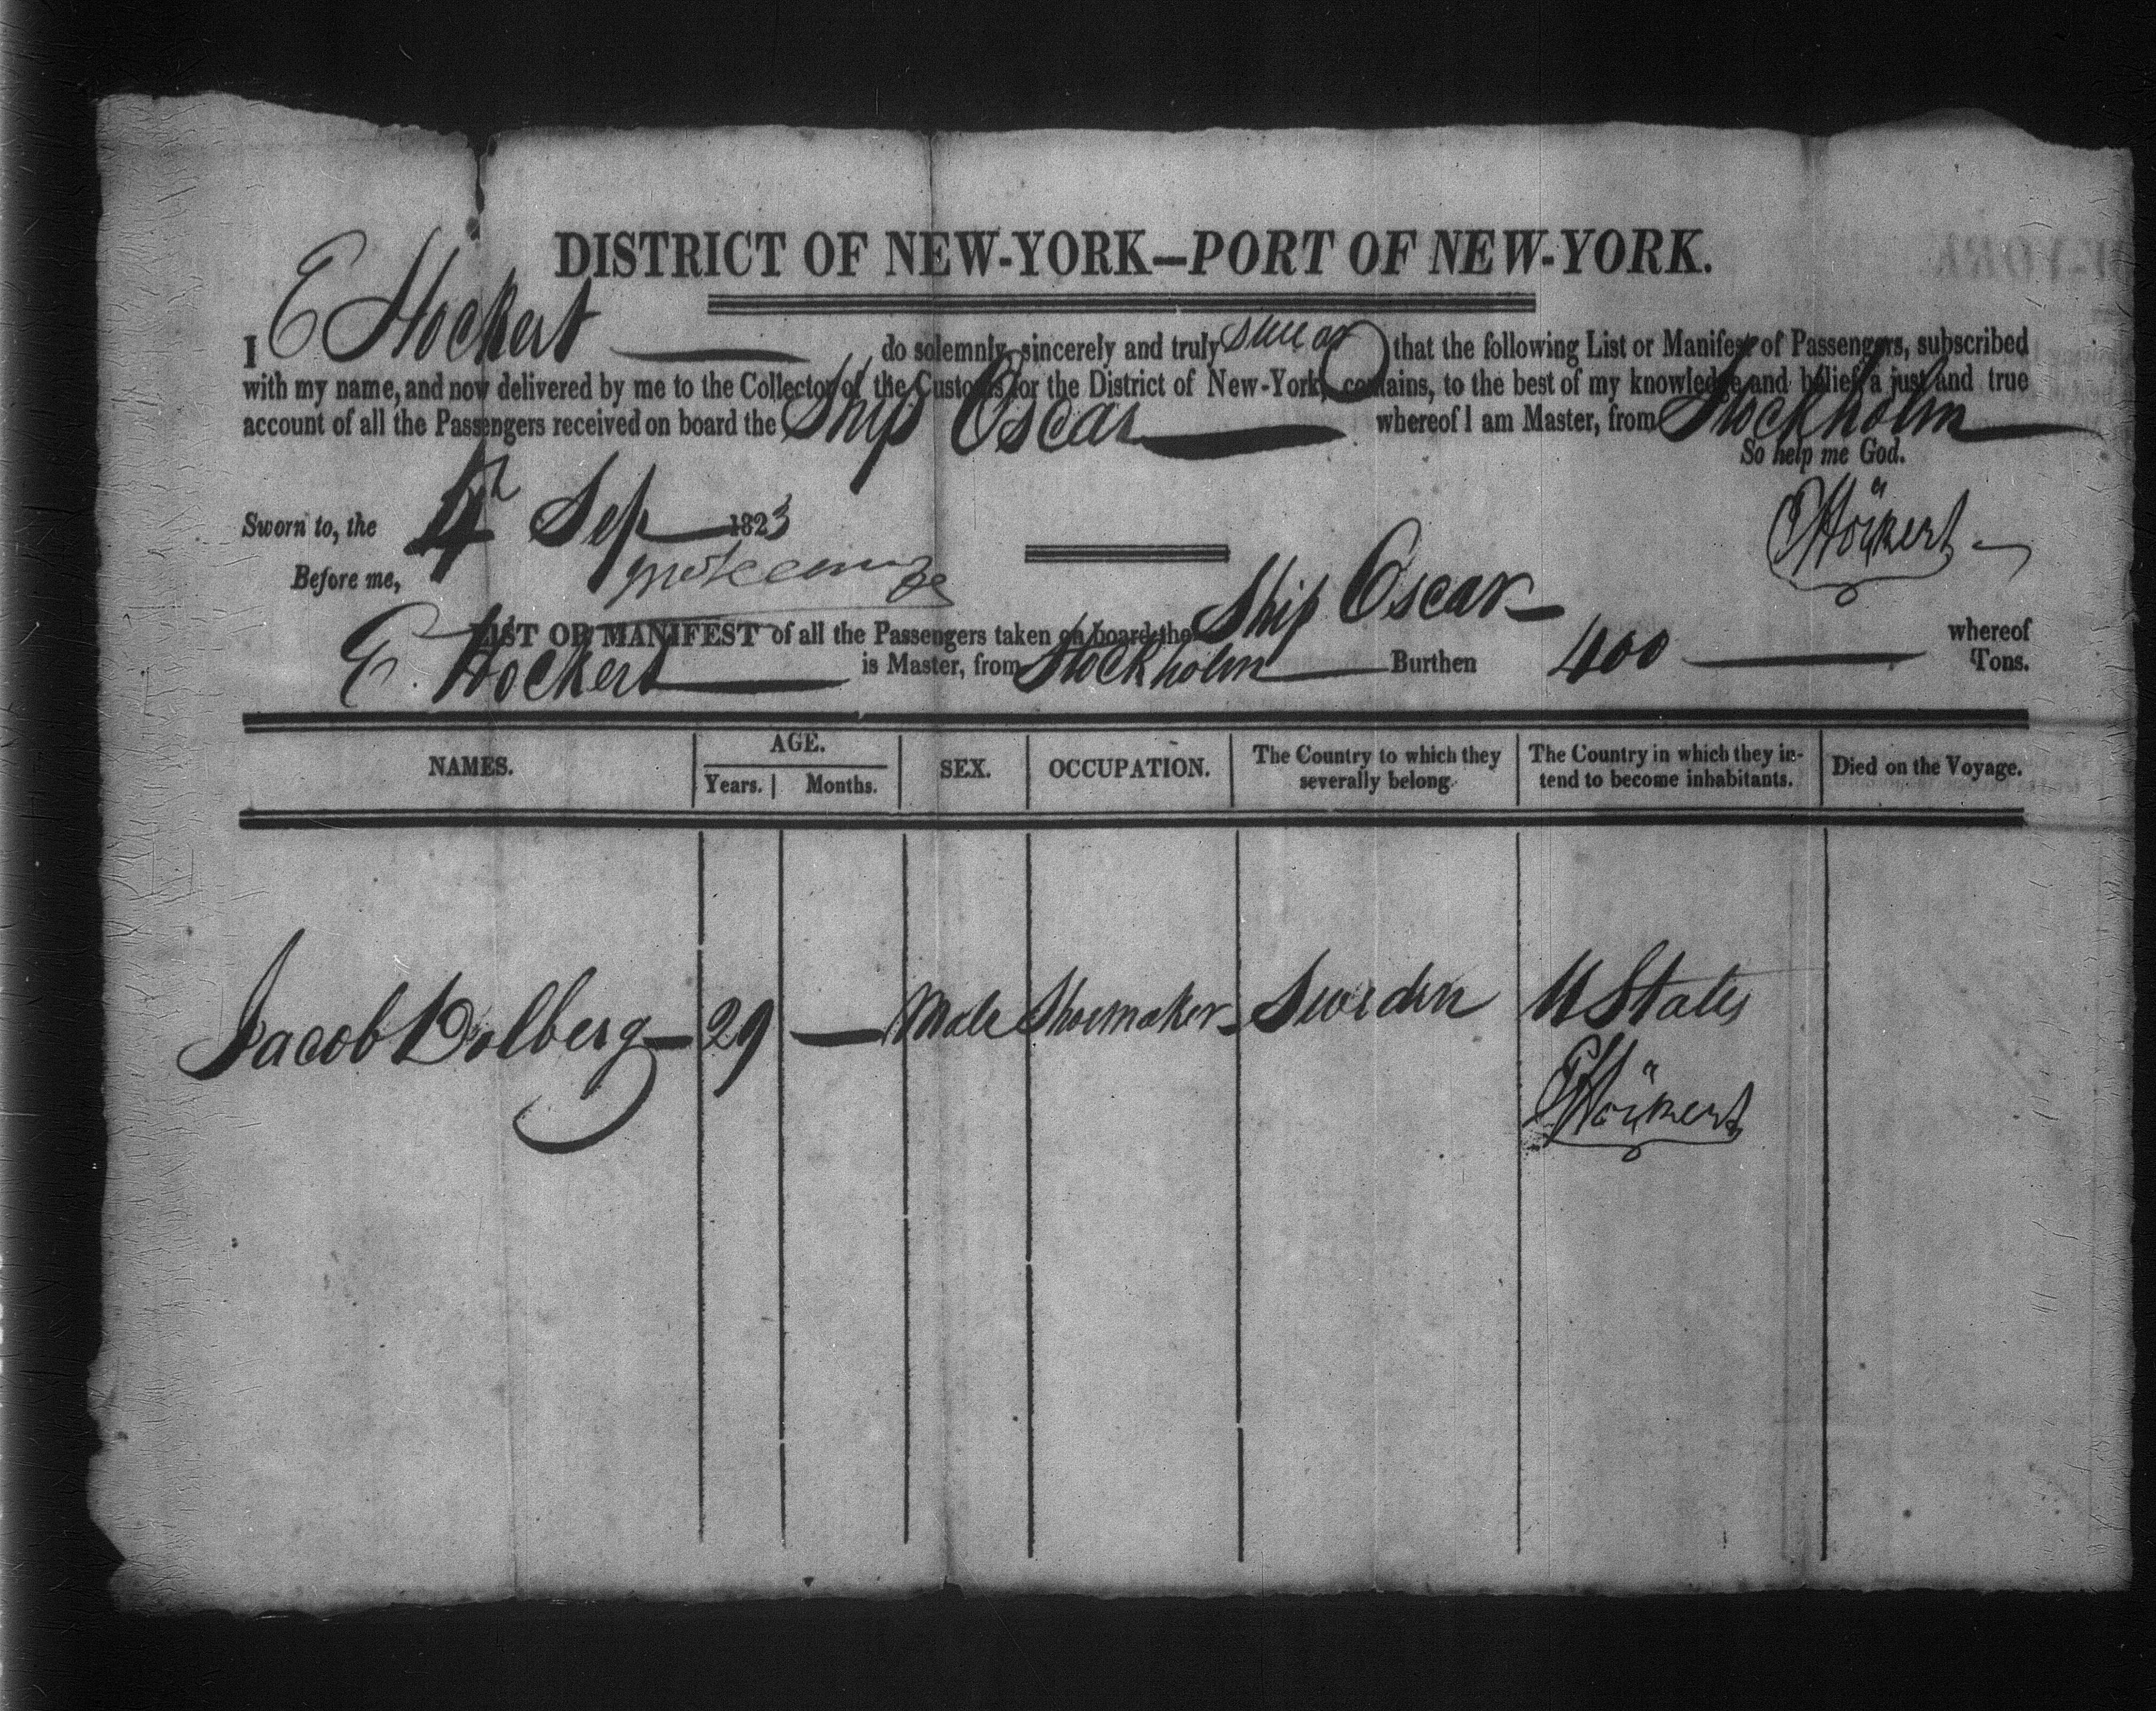 DISTRICT OF NEW-YORK—PORT OF NEW-YORK.
I E Hockert do solemnly, sincerely and truly swear that the following List or Manifest of Passengers, subscribed
with my name, and now delivered by me to the Collector of the Customs for the District of New-York, contains, to the best of my knowledge and belief, a just and true
account of all the Passengers received on board the Ship Oscar whereof I am Master, from Stockholm
So help me God.
Sworn to, the 4th Sep 1823
EHöckert
Before me,
LIST OR MANIFEST of all the Passengers taken on board the Ship Oscar whereof
E. Hockert is Master, from Stockholm Burthen 400 Tons.
NAMES. AGE. Years. Months. SEX. OCCUPATION. The Country to which they severally belong. The Country in which they intend to become inhabitants. Died on the Voyage.
Jacob Dolberg — 29 — Male Shoemaker Sweden U States
EHöckert